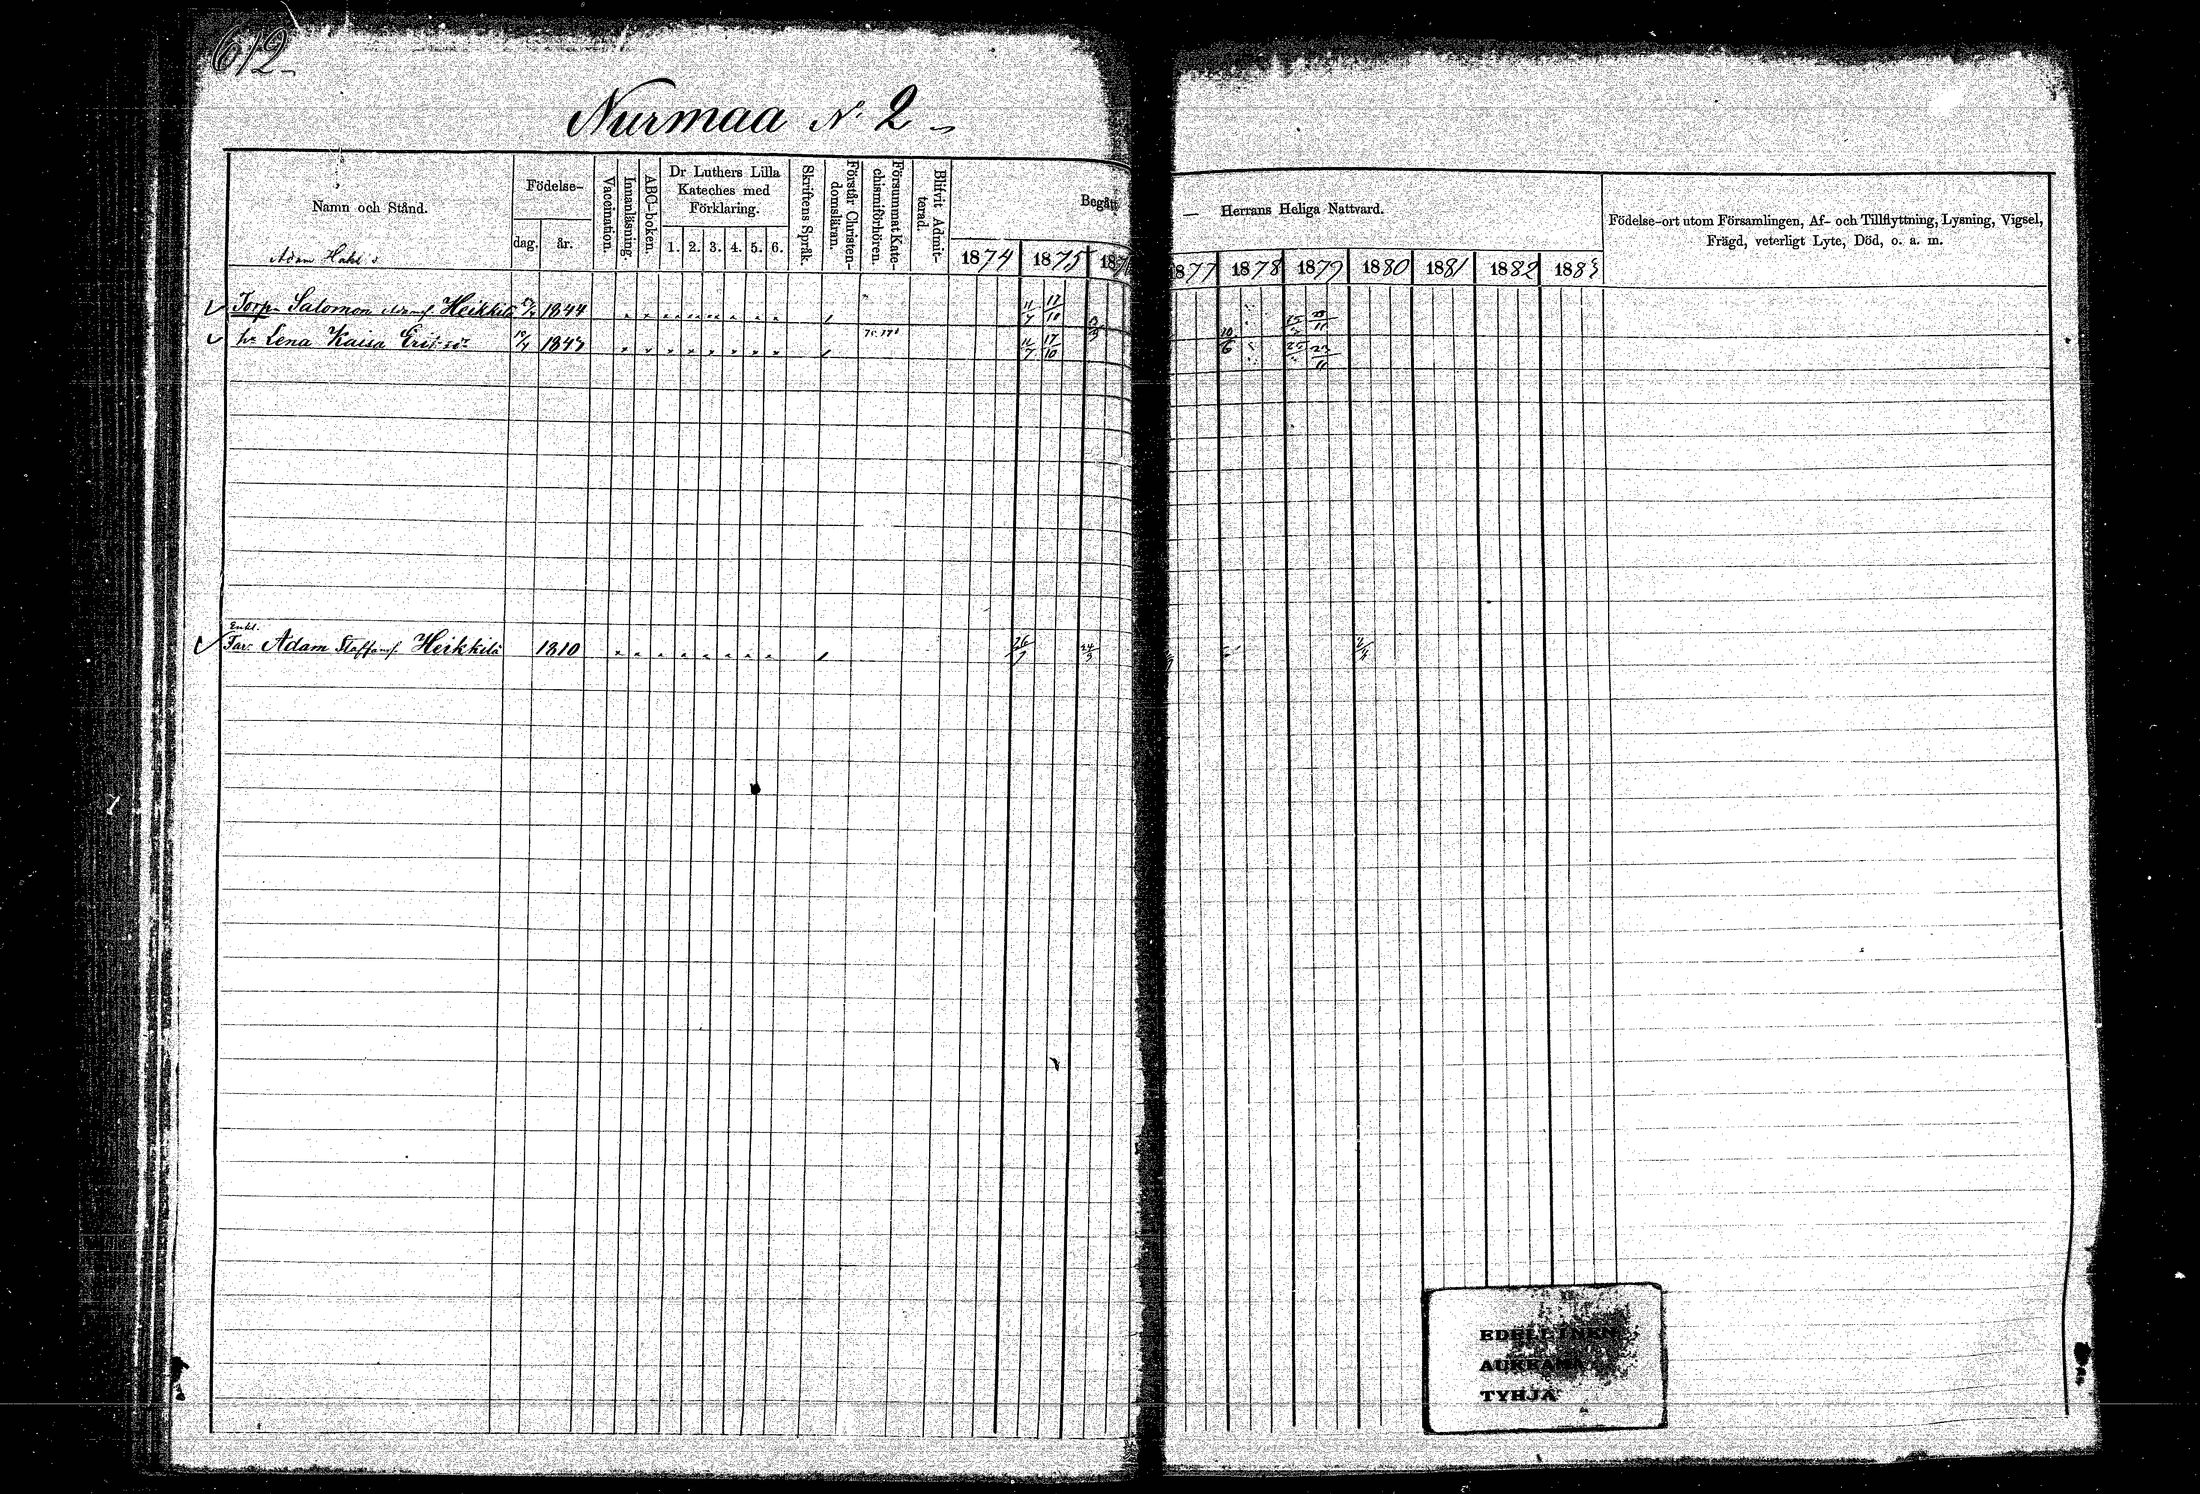 612
Nurmaa N:o 2
Namn och Stånd.
Födelse-
dag.
år.
Vaccination.
Innanläsning.
ABC-boken.
Dr Luthers Lilla
Kateches med
Förklaring.
1. 2. 3. 4. 5. 6.
Skriftens Språk.
Förstår Christen-
domsläran.
Försummat Kate-
chismiförhören.
Blifvit Admit-
terad.
Begått — Herrans Heliga Nattvard.
1874 1875 187
1877 1878 1879 1880 1881 1882 1883
Födelse-ort utom Församlingen, Af- och Tillflyttning, Lysning, Vigsel,
Frägd, veterligt Lyte, Död, o. a. m.
Adam
Torp. Salomon Heikkilä 1844 11/7 17/10
h: Lena Kaisa 1847 11/7 17/10 10/6
Enkl.
Far: Adam Staffansf. Heikkilä 1810 26/7 24/3
EDELLINEN
AUKEAMA
TYHJÄ